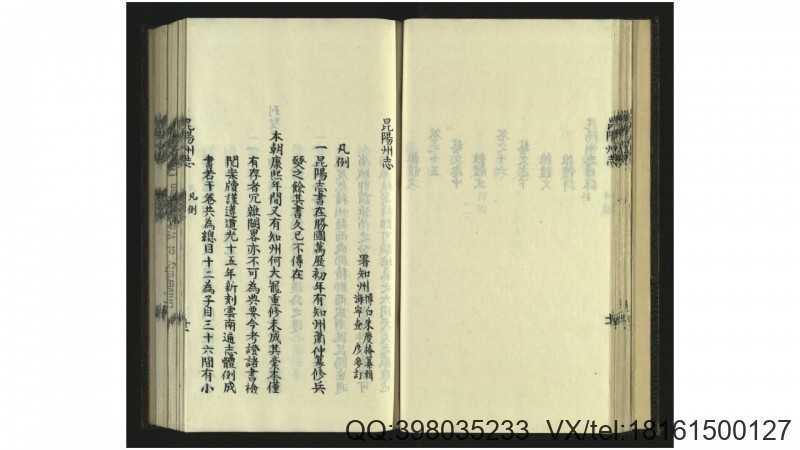 昆陽州志
凡例
署知州博白朱慶椿纂輯
海寧查彥參訂
一昆陽志書在勝國萬歷初年有知州蕭仲纂修兵
燹之餘其書久已不傳在
本朝康熙年間又有知州何大寵重修未成其稾本僅
有存者冗雜闕畧亦不可為典要今考證諸書檢
閱案牘謹遵道光十五年新刻雲南通志體例成
書若干卷共為總目十二為子目三十六間有小
昆陽州志
凡例
昆陽州志
QQ:398035233 VX/tel:18161500127